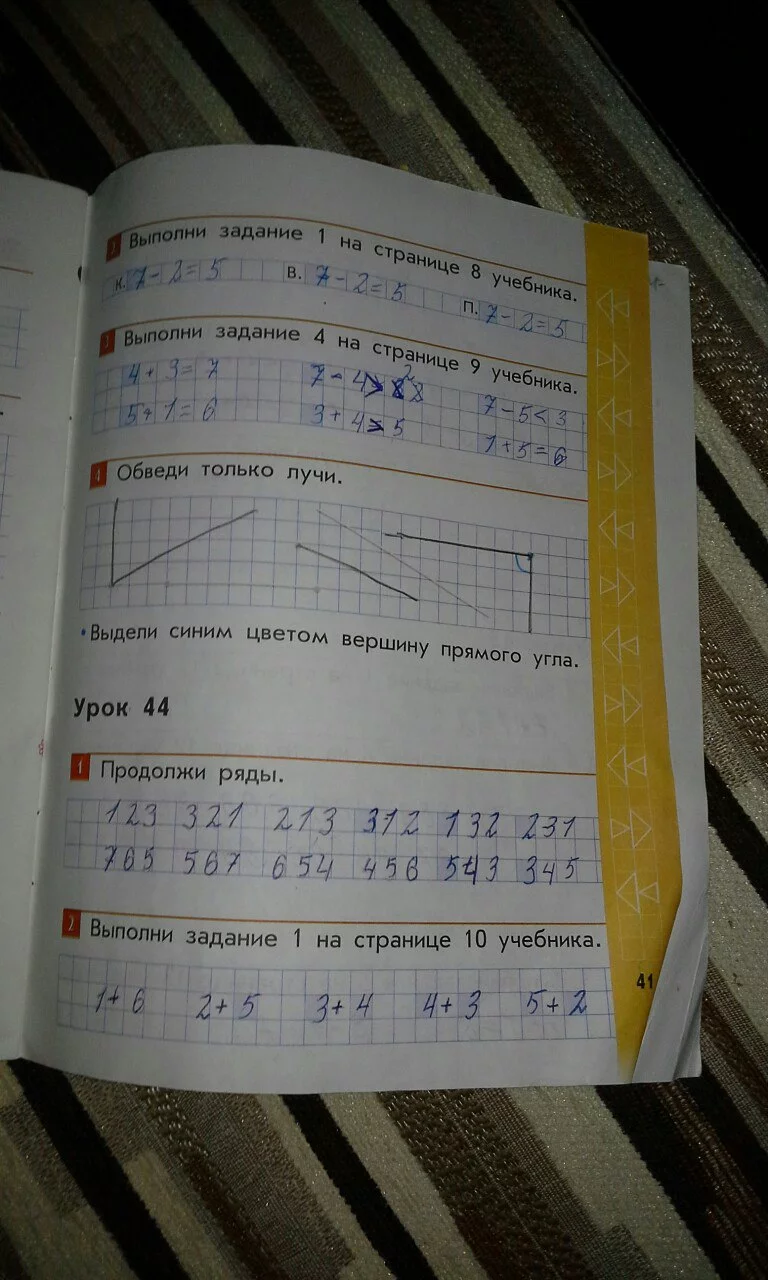 2 Выполни задание 1 на странице 8 учебника.
К. 7-2=5 В. 7-2=5 П. 7-2=5
3 Выполни задание 4 на странице 9 учебника.
4+3=7 7-4> 2 7-5<3
5+1=6 3+4>5 1+5=6
4 Обведи только лучи.
• Выдели синим цветом вершину прямого угла.
Урок 44
1 Продолжи ряды.
123 321 213 312 132 231
765 567 654 456 543 345
2 Выполни задание 1 на странице 10 учебника.
1+6 2+5 3+4 4+3 5+2
41